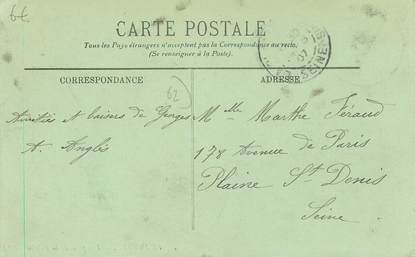 6€
CARTE POSTALE
Tous les Pays étrangers n'acceptent pas la Correspondance au recto.
(Se renseigner à la Poste).
SEINE
07
CORRESPONDANCE
ADRESSE
62
Amitiés et baisers de Georges
A. Anglès
Mlle Marthe Féraud
178 Avenue de Paris
Plaine St Denis
Seine